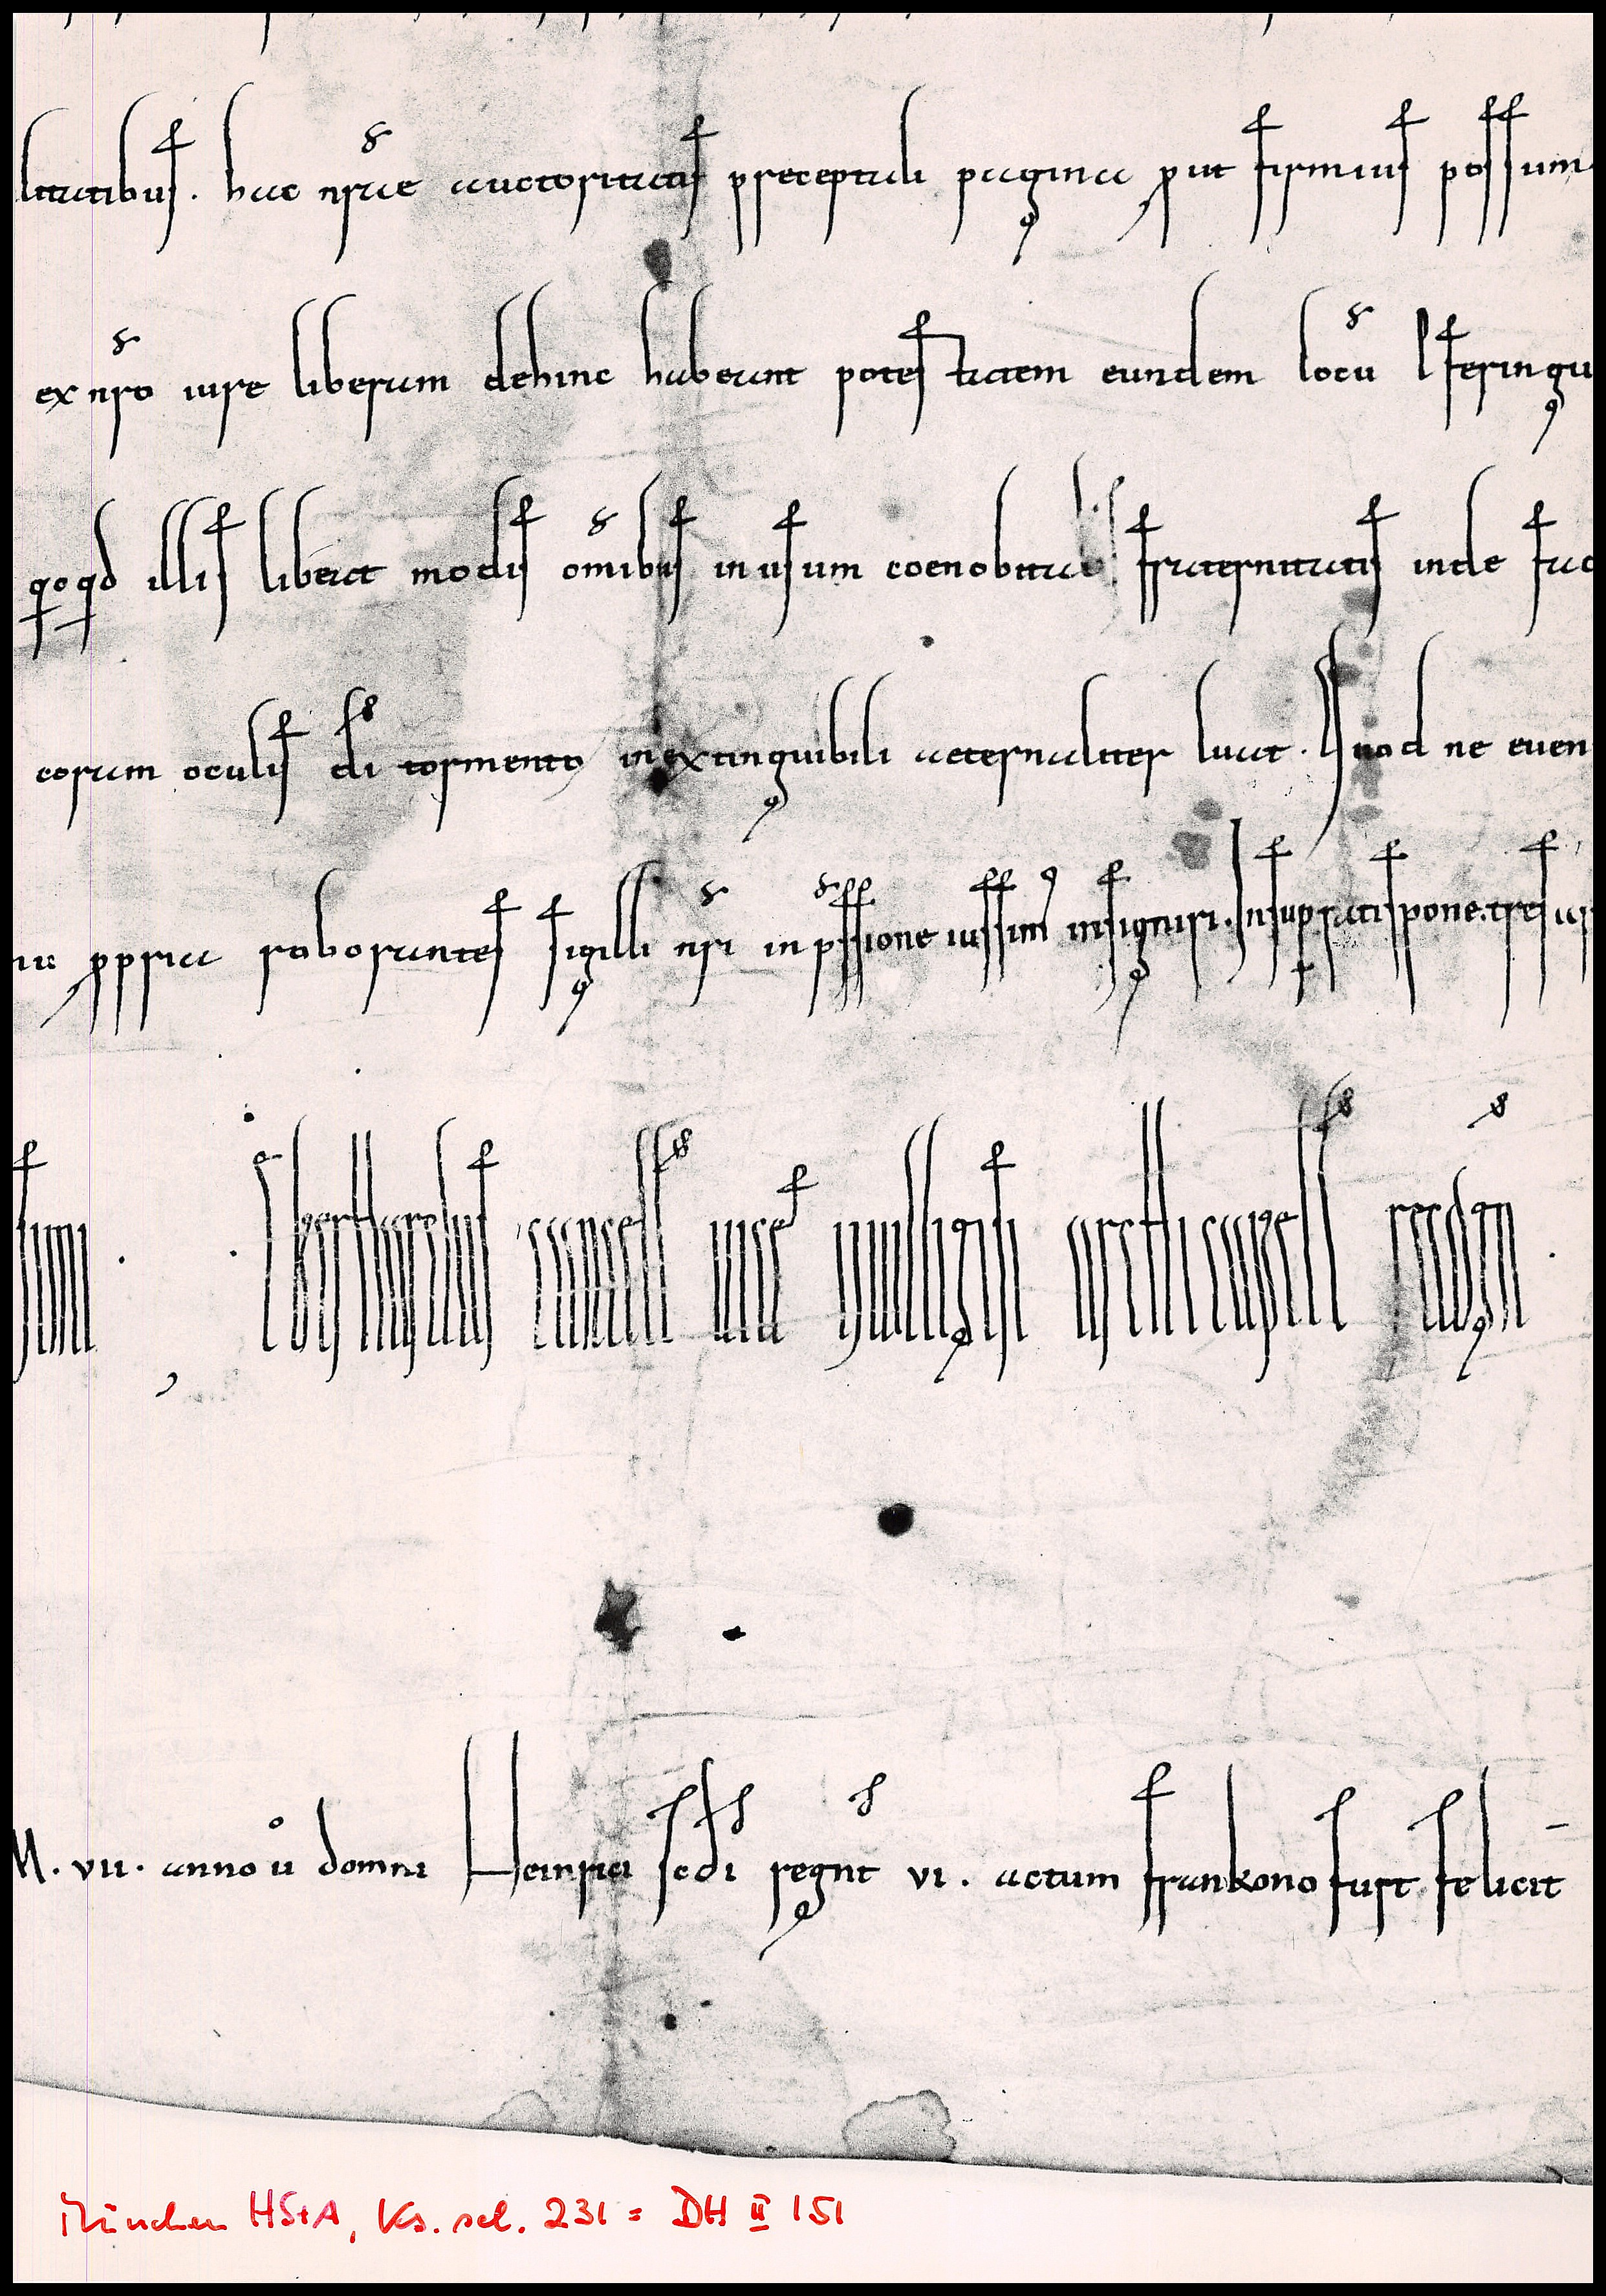 litatibus . hac nrae auctoritatis preceptali pagina put firmius possum
ex nro iure liberam dehinc habeant potestatem eundem locu Isteringu
qoqd illis libeat modis omibus in usum coenobitae fraternitatis inde fac
eorum oculis di tormento inextinguibili aeternaliter luat . Quod ne euen
nu ppria roborantes sigilli nri inpssione iussim insigniri . Insup ratispone . tres
simi . Eberhardus cancell uice uuilligisi archicapell recogn .
M . vii . anno u domni Heinrici scdi regnt vi . actum frankonofurt felicit
München HStA, Ks. sel. 231 = DH II 151